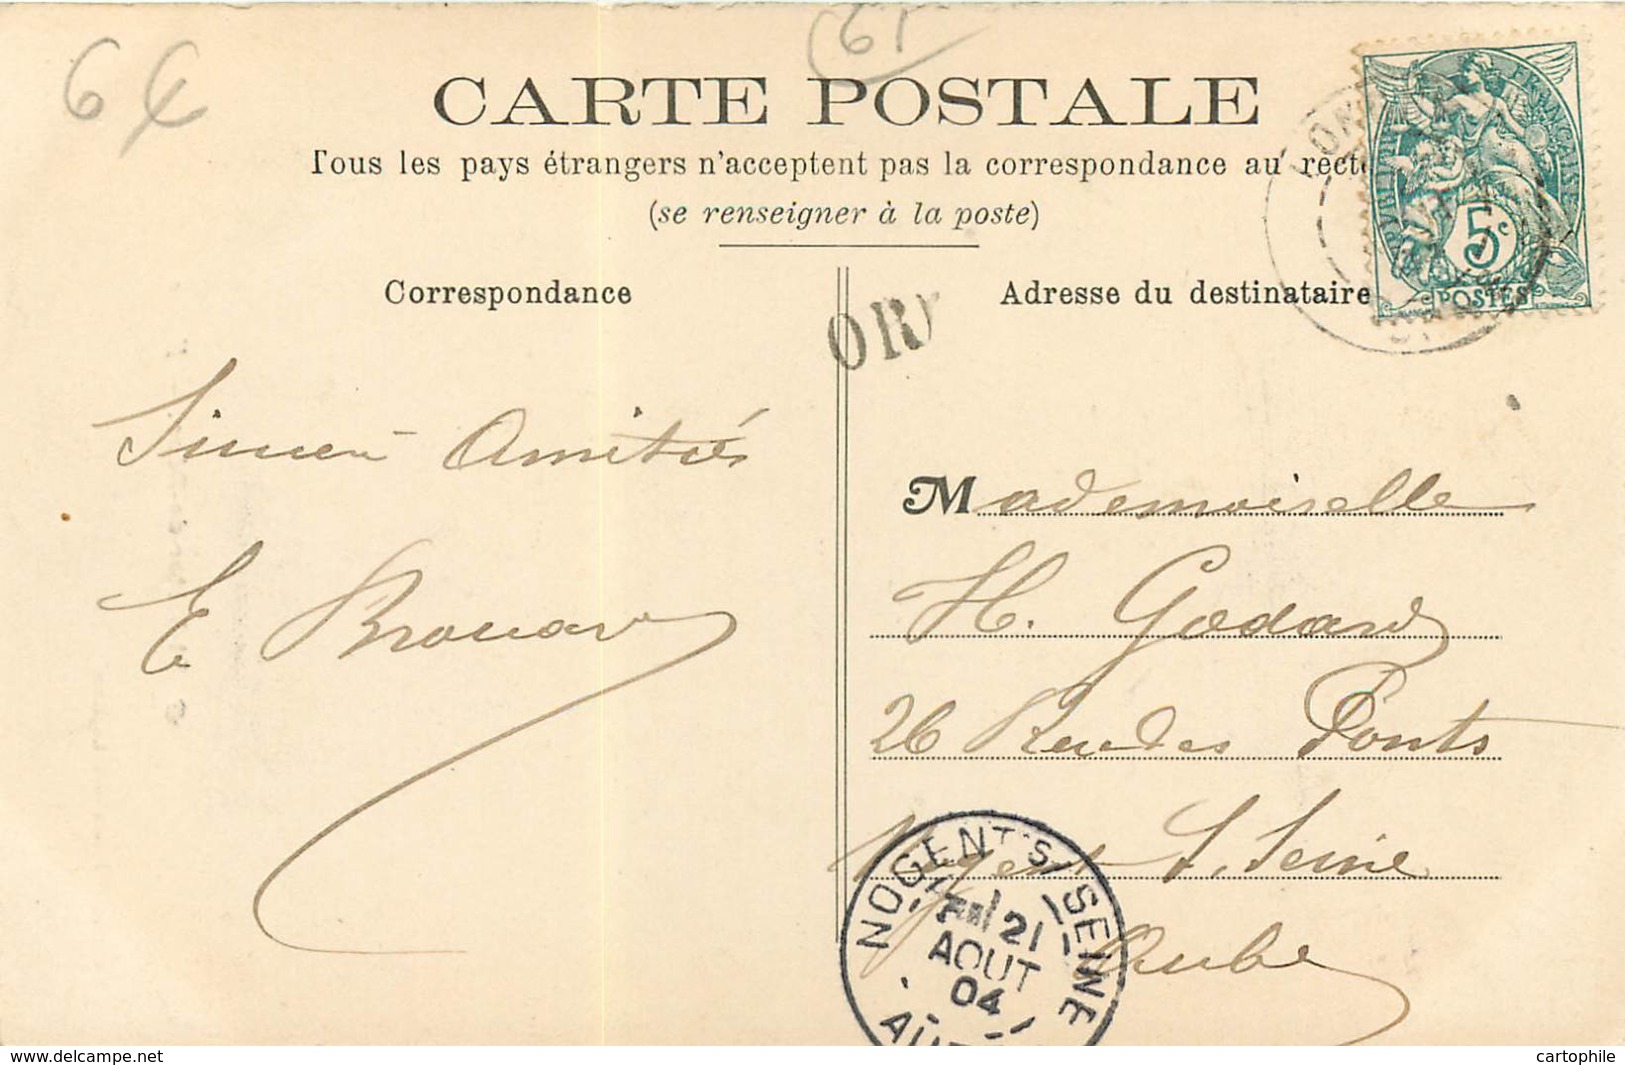 6 €
61
CARTE POSTALE
Tous les pays étrangers n'acceptent pas la correspondance au recto
(se renseigner à la poste)
Correspondance
Adresse du destinataire
OR
RÉPUBLIQUE FRANÇAISE
5c
POSTES
Amitiés
E Brouard
Mademoiselle
H. Godard
26 Rue des Ponts
Nogent s. Seine
Aube
NOGENT S/ SEINE
21
AOUT
04
www.delcampe.net
cartophile